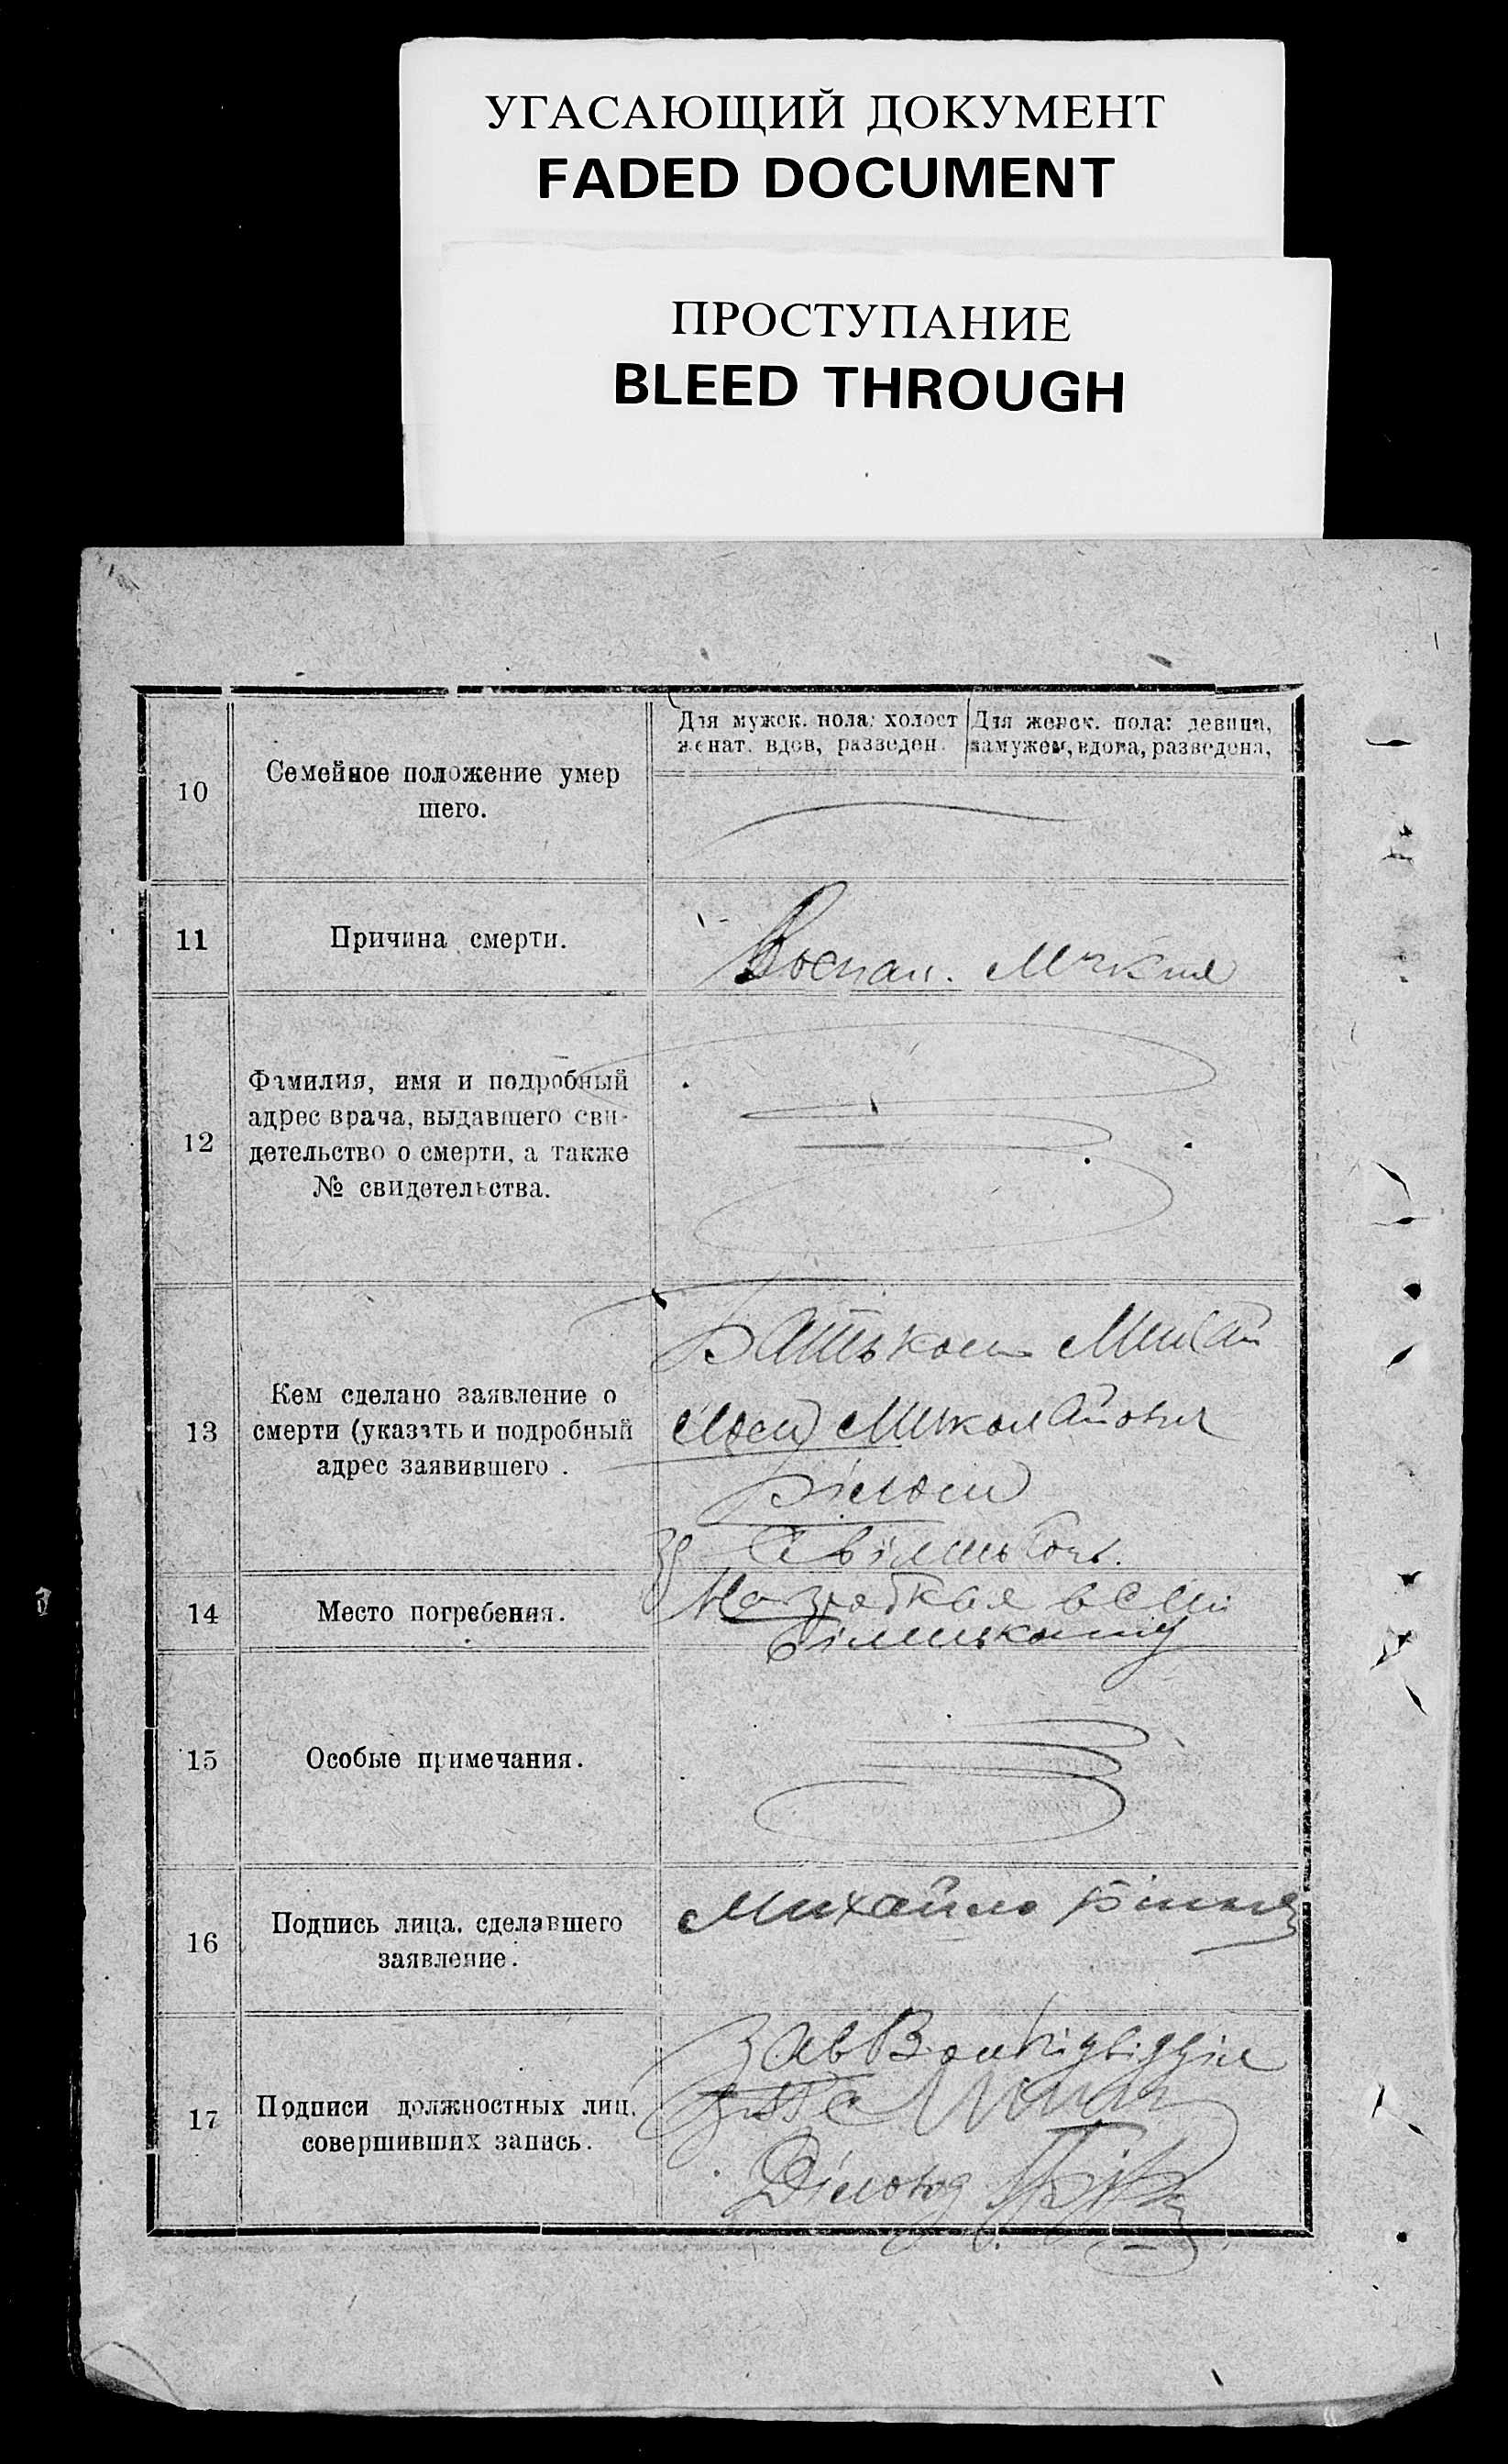 УГАСАЮЩИЙ ДОКУМЕНТ
FADED DOCUMENT
ПРОСТУПАНИЕ
BLEED THROUGH
10
Семейное положение умер
шего.
Для мужск. пола: холост
женат. вдов, разведен.
Для женск. пола: девица,
замужем, вдова, разведена,
11
Причина смерти.
Воспал.
12
Фамилия, имя и подробный
адрес врача, выдавшего сви-
детельство о смерти, а также
№ свидетельства.
13
Кем сделано заявление о
смерти (указать и подробный
адрес заявившего.
Батьком Михай
лом Миколайович
Білом
14
Место погребения.
15
Особые примечания.
16
Подпись лица. сделавшего
заявление.
Михайло
17
Подписи должностных лиц.
совершивших запись.
Зав
Діловод